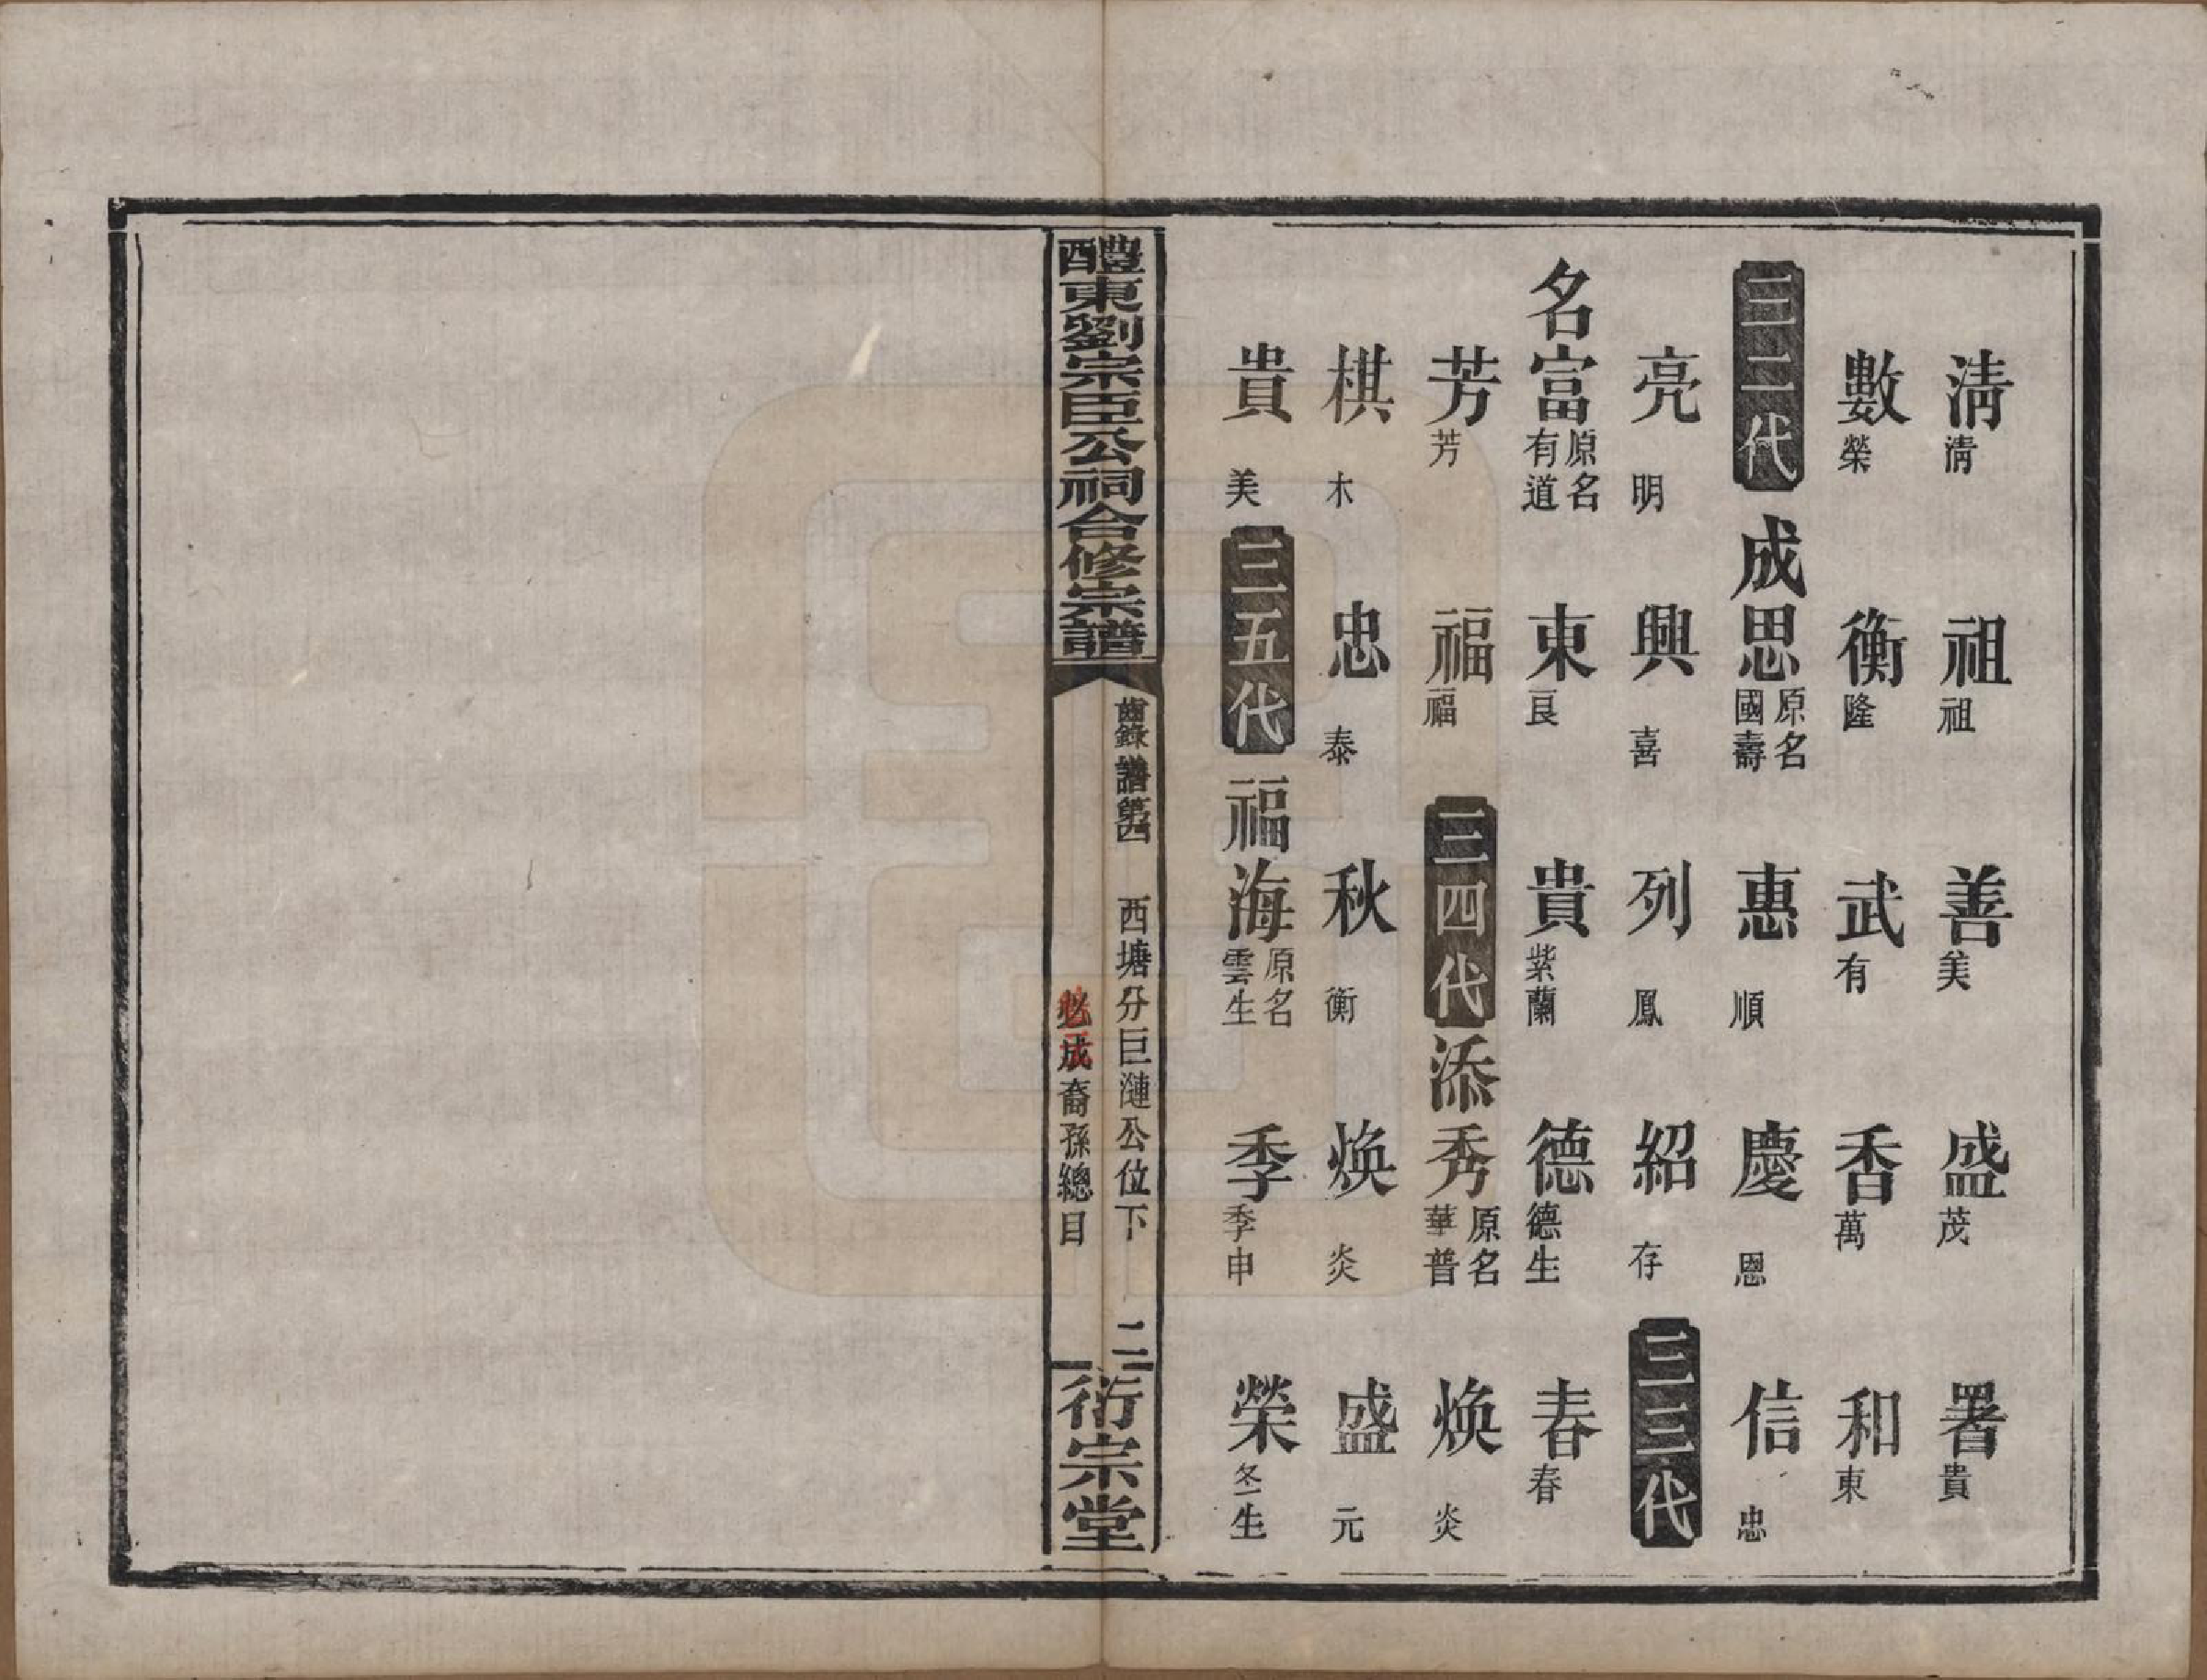 清清 祖祖 善美 盛茂 署貴
數榮 衡隆 武有 香萬 和東
三二代 成思原名國壽 惠順 慶恩 信忠
亮明 興喜 列鳳 紹存 三三代
名富原名有道 東良 貴紫蘭 德德生 春春
芳芳 福福 三四代 添秀原名華普 煥炎
棋木 忠泰 秋衡 煥炎 盛元
貴美 三五代 福海原名雲生 季季申 榮冬生
醴東劉宗臣公祠合修宗譜
齒錄 譜第四 西塘分巨漣公位下 二
必成裔孫總目
衍宗堂